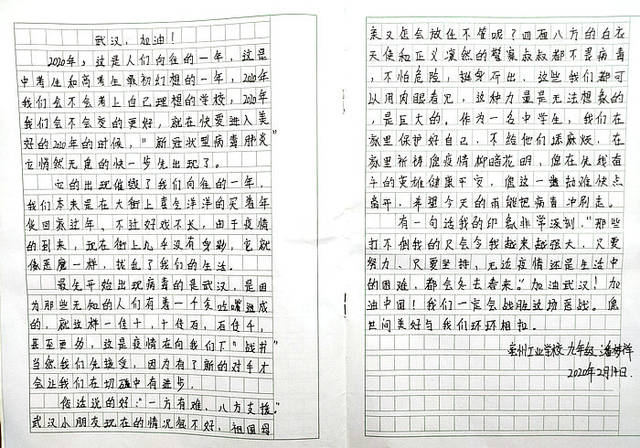 武汉，加油！
2020年，这是人们向往的一年，这是
中考生和高考生最初幻想的一年，2020年
我们会不会考上自己理想的学校，2020年
我们会不会变的更好，就在快要进入美
好的2020年的时候，"新冠状型病毒肺炎"
它悄然无息的快一步先出现了。
它的出现催毁了我们向往的一年，
我们本来是在大街上喜气洋洋的买着年
货回家过年、不过好戏不长，由于疫情
的到来，现在街上几乎没有身影，它就
像恶魔一样，扰乱了我们的生活。
最先开始出现病毒的是武汉，是因
为那些无知的人们有着一千贪吃嘴造成
的，就这样一传十，十传百，百传千，
甚至更多，这是疫情在向我们下"战书"
当然我们先接受，因为有了新的对手才
会让我们在切磋中有进步。
俗话说的好："一方有难、八方支援。"
武汉小朋友现在的情况很不好，祖国母
亲又怎会放任不管呢？四面八方的白衣
天使和正义凛然的警察叔叔都不畏病毒
，不怕危险，挺身而出，这些我们都可
以用肉眼看见，这种力量是无法想象的
，是巨大的，作为一名中学生，我们在
家里保护好自己，不给他们添麻烦，在
家里祈祷愿疫情柳暗花明，愿在先线奋
斗的英雄健康平安，愿这一难快点
离开，希望今天的雨能把病毒冲刷走。
有一句话我的印象非常深刻，"那些
打不倒我的只会令我越来越强大，只要
努力、只要坚持，无论疫情还是生活中
的困难，都会冬去春来"加油武汉！加
油中国！我们一定会战胜这场医战。愿
世间美好与我们环环相扣。
亳州工业学校 九年级 潘梦祥
2020年2月14日.